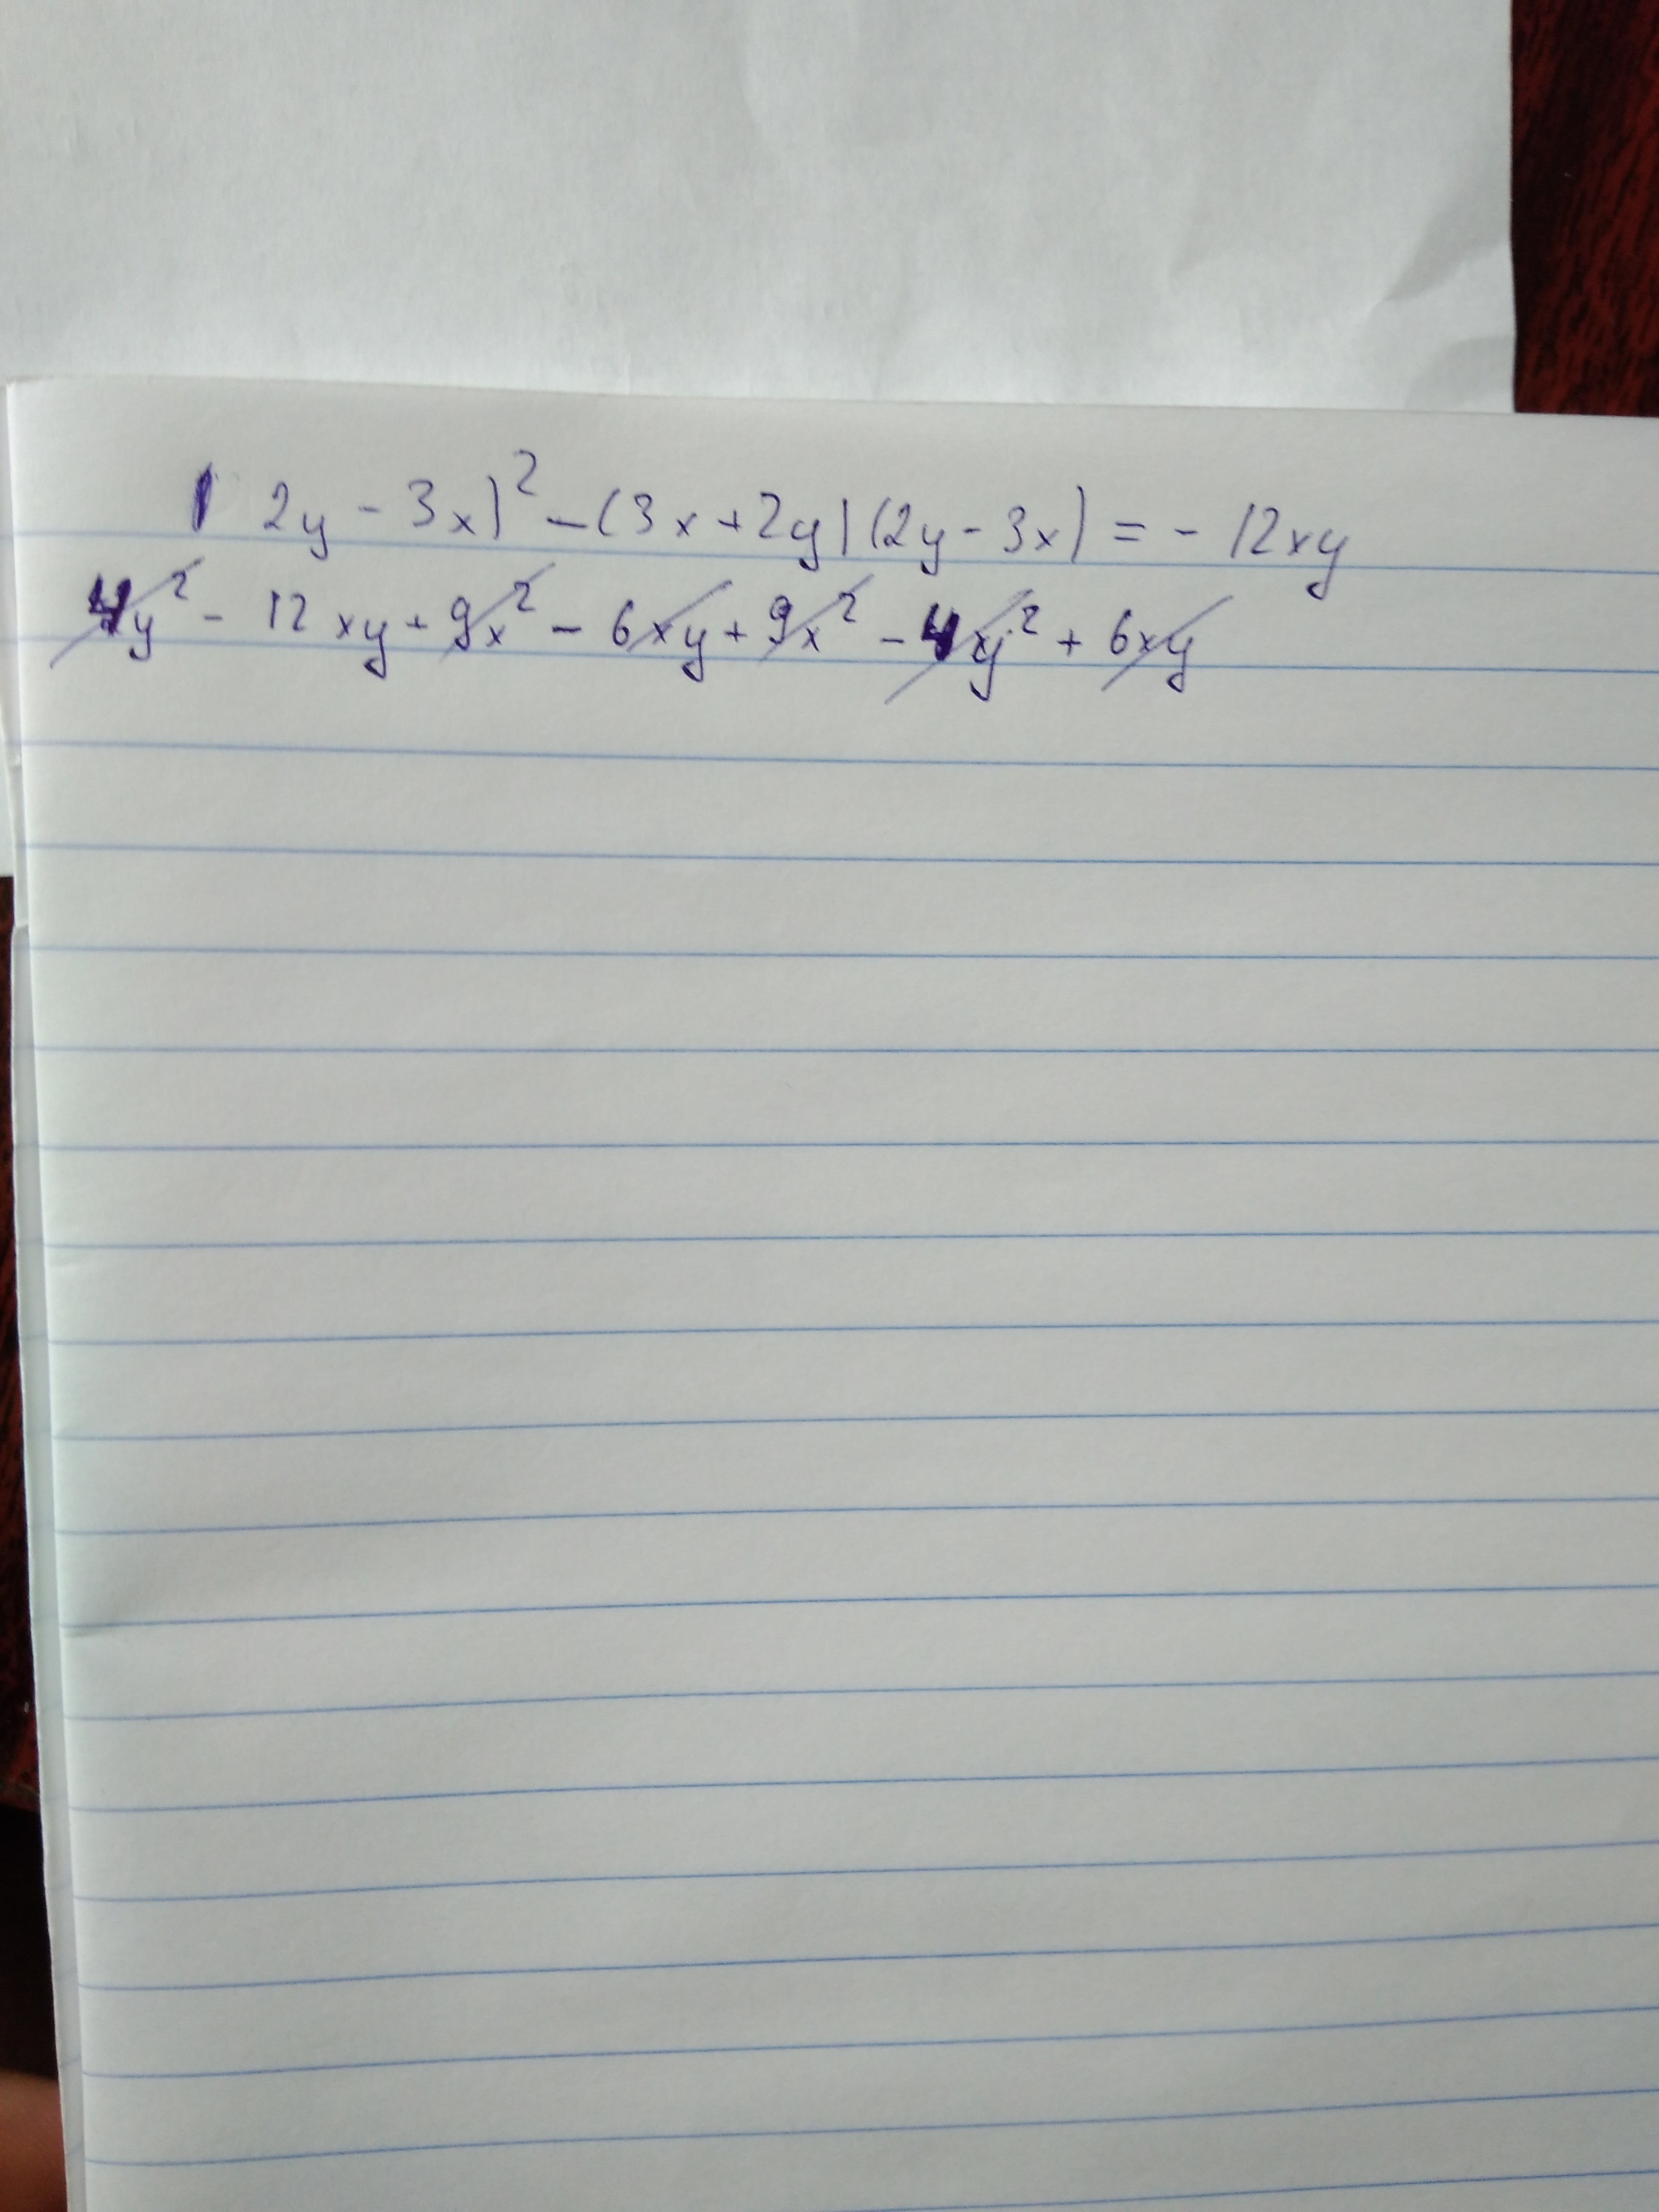 ( 2y - 3x)² - (3x + 2y) (2y - 3x) = - 12xy
4y² - 12xy + 9x² - 6xy + 9x² - 4y² + 6xy